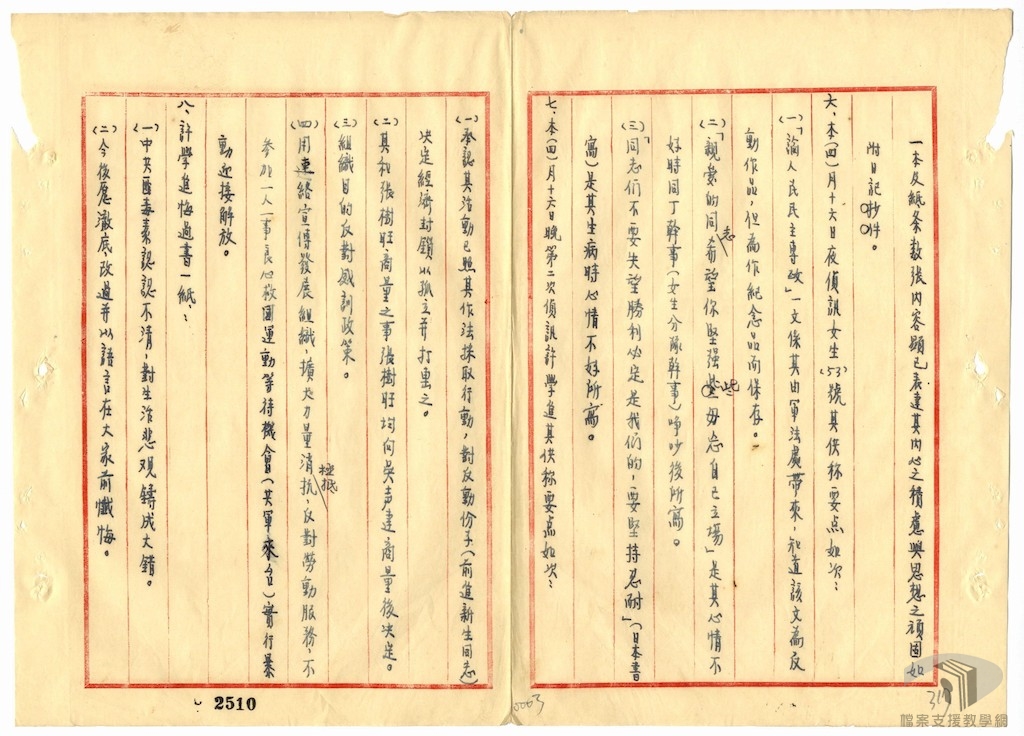 一本及紙条数张内容顕已表達其内心之積慮與思想之頑固如
附日記抄件。
六、本(四)月十六日夜偵訊女生(53)號其供称要点如次：
(一)「論人民民主專政」一文係其由軍法處帶來，知道該文為反
動作品，但為作紀念品而保存。
(二)「親愛的同志希望你坚强些毋忘自己立場」是其心情不
好時同丁幹事(女生分隊幹事)啤吵後所寫。
(三)「同志们不要失望勝利必定是我们的，要坚持忍耐」(日本書
寫)是其生病時心情不好所寫。
七、本(四)月十六日晚第二次偵訊許學進其供称要点如次：
(一)承認其活動已照其作法採取行動，對反動份子(前進新生同志)
决定經濟封鎖以孤立并打垂之。
(二)其和張樹旺商量之事張樹旺均向吳声達商量後决定。
(三)組織目的反對感訓政策。
(四)用連絡宣傳發展組織，擴大力量消極抵抗，反對勞動服務，不
參加一人一事良心救國運動等待機會(共軍來台)實行暴
動迎接解放。
八、許學進悔過書一紙：
(一)中共匪毒素認認不清，對生活悲观鑄成大錯。
(二)今後愿澈底改過并以語言在大家前懺悔。
2510
0063
319
檔案支援教學網